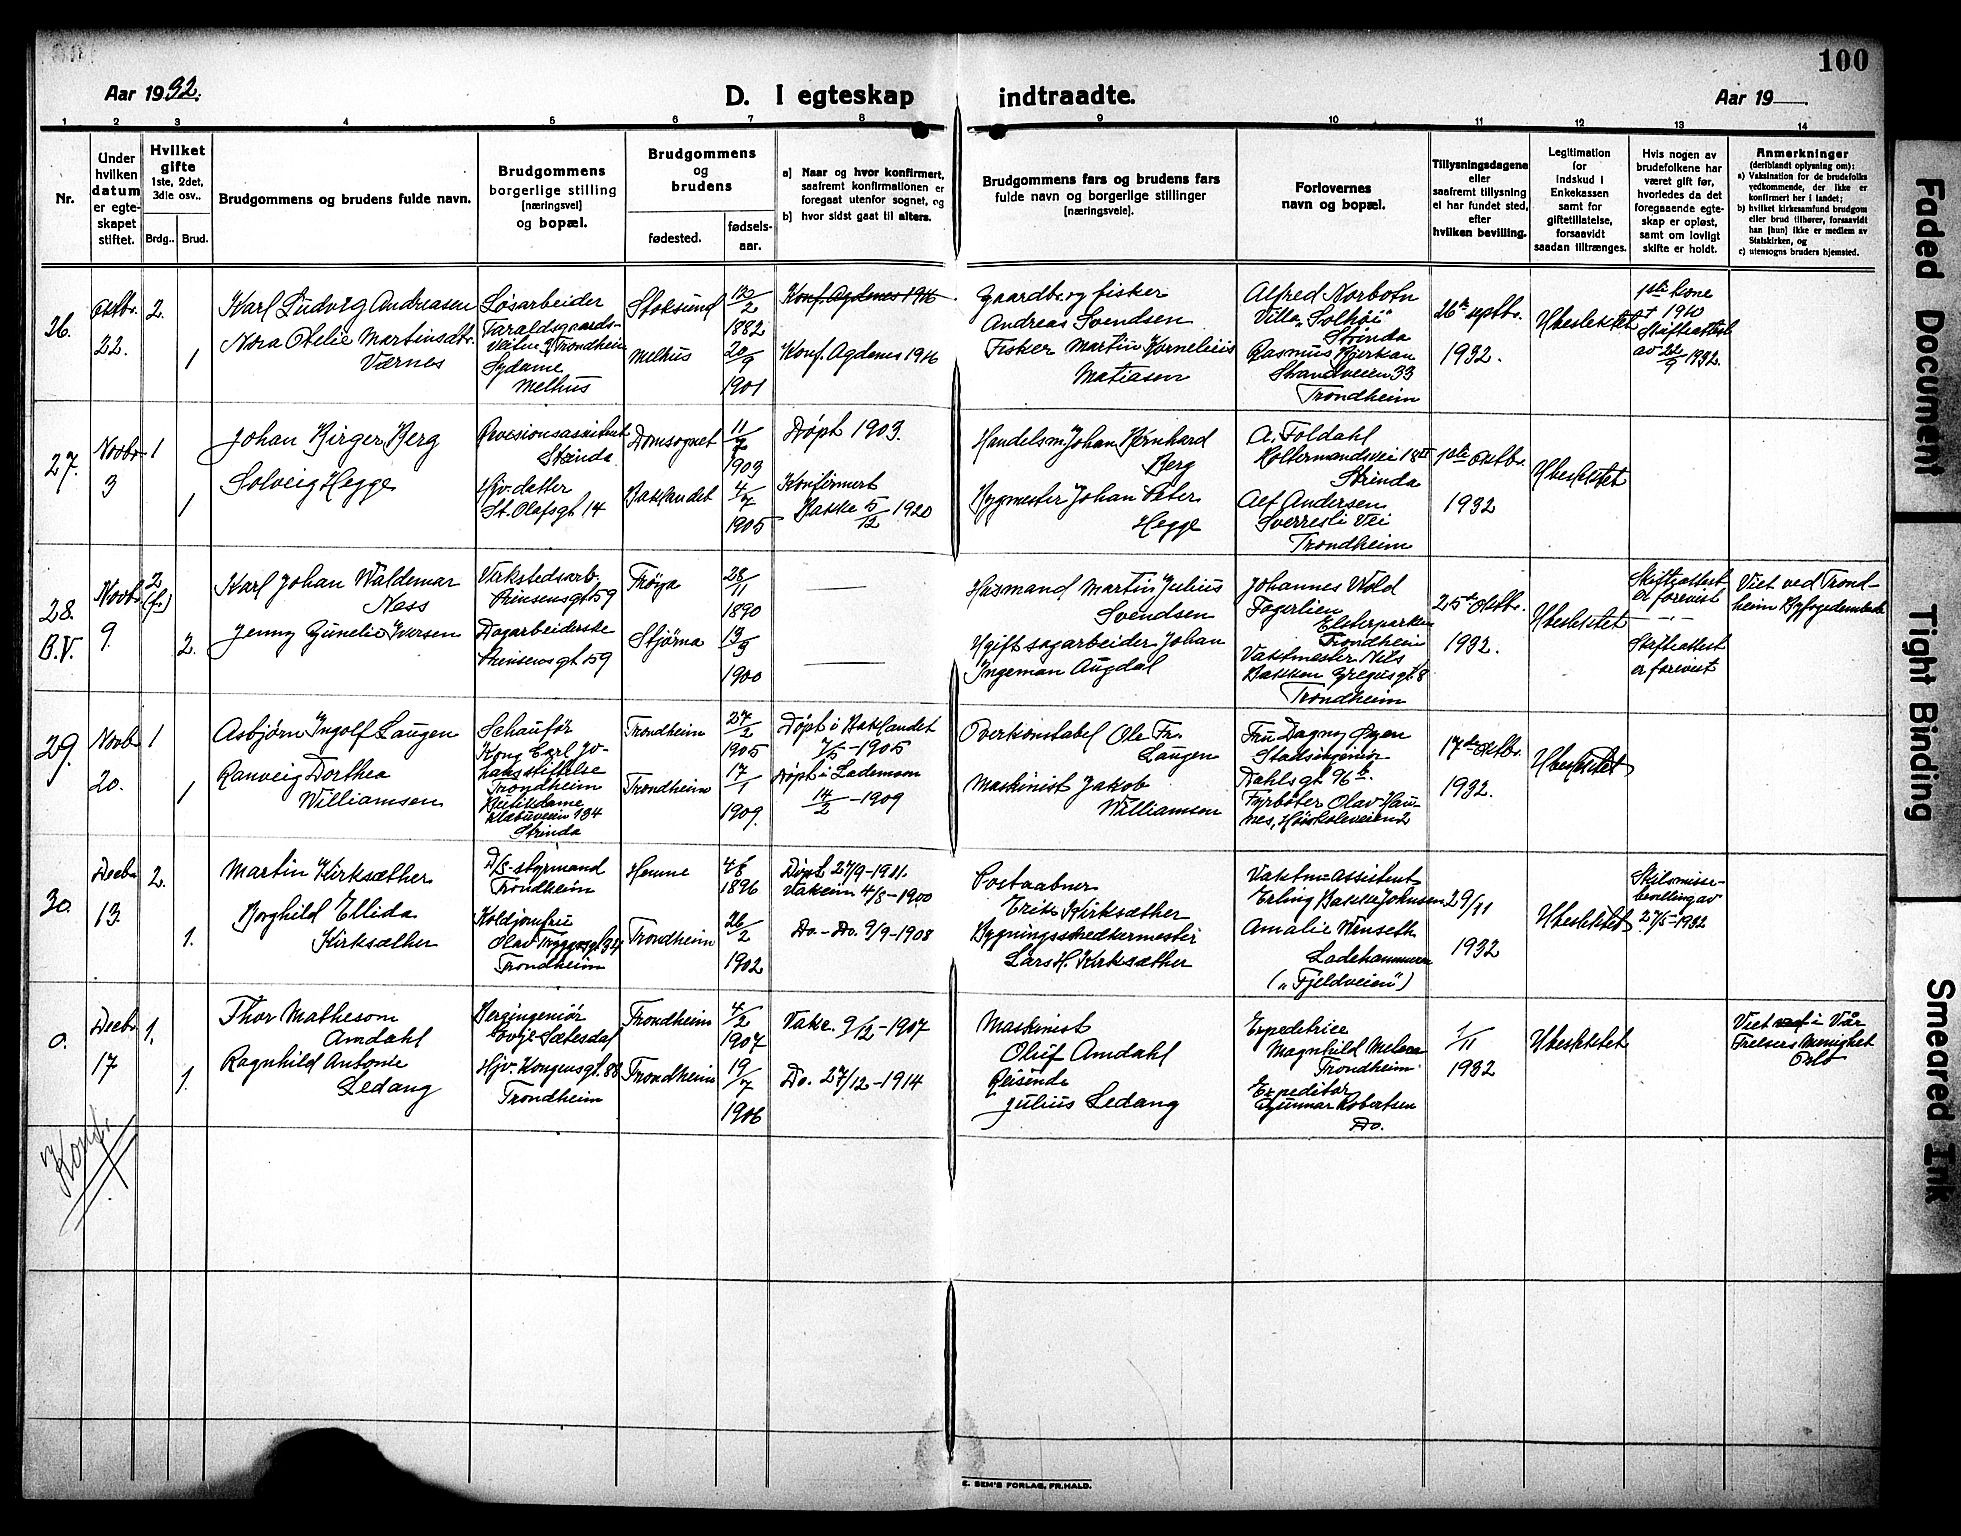 100
Aar 1932.
D. I egteskap indtraadte.
Aar 19
1 2 3 4 5 6 7 8 9 10 11 12 13 14
Nr.
Under
hvilken
datum
er egte-
skapet
stiftet.
Hvilket
gifte
1ste, 2det,
3die osv..
Brdg.. Brud.
Brudgommens og brudens fulde navn.
Brudgommens
borgerlige stilling
(næringsvei)
og bopæl.
Brudgommens
og
brudens
fødested.
fødsels-
aar.
a) Naar og hvor konfirmert,
saafremt konfirmationen er
foregaat utenfor sognet, og
b) hvor sidst gaat til alters.
Brudgommens fars og brudens fars
fulde navn og borgerlige stillinger
(næringsveie).
Forlovernes
navn og bopæl.
Tillysningsdagene
eller
saafremt tillysning
ei har fundet sted,
efter
hvilken bevilling.
Legitimation
for
indskud i
Enkekassen
samt for
giftetillatelse,
forsaavidt
saadan tiltrænges.
Hvis nogen av
brudefolkene har
været gift før,
hvorledes da det
foregaaende egte-
skap er opløst,
samt om lovligt
skifte er holdt.
Anmerkninger
(deriblandt oplysning om):
a) Vaksination for de brudefolks
vedkommende, der ikke er
konfirmert her i landet;
b) hvilket kirkesamfund brudgom
eller brud tilhører, forsaavidt
han (hun) ikke er medlem av
Statskirken, og
c) utensogns bruders hjemsted.
26.
Oktbr.
22.
2.
1
Karl Ludvig Andreasen
Nora Otelie Martinsdtr.
Værnes
Løsarbeider
Taraldsgaards-
veiten 9 Trondheim
Sydame
Melhus
Stoksund
Melhus
12/2
1882
20/9
1901
Konf. Agdenes 1916.
Konf. Agdenes 1916
Gaardb. og fisker
Andreas Svendsen
Fisker Martin Kornelius
Matiasen
Alfred Norbotn
Villa „Solhöi"
Strinda
Rasmus Bjerkan
Strandveien 33
Trondheim
26de septbr.
1932.
Ubeslektet
1ste kone
† 1910
Skifteattest
av 22/9 1932.
27.
Novbr
3
1
1
Johan Birger Berg
Solveig Hegge
Revisionsassistent
Strinda
Hjv. datter
St. Olafsgt 14
Domsognet
Baklandet
11/2
1903
4/7
1905
Døpt 1903.
Konfirmert
Bakke 5/12 1920
Handelsm. Johan Bernhard
Berg
Bygmester Johan Peter
Hegge
A. Foldahl
Strinda
Alf Andersen
Sverresli Vei
Trondheim
1ste Oktbr.
1932
Ubeslektet
28.
B.V.
Novb.
9.
2
(f.)
2.
Karl Johan Waldemar
Ness
Jenny Gunelie Iversen
Verkstedsarb.
Prinsensgt 59
Dagarbeiderske
Prinsensgt 59
Frøya
Stjørna
28/11
1890
13/3
1900
Husmand Martin Julius
Svendsen
Ugift sagarbeider Johan
Ingeman Augdal
Johannes Wold
Fagerlien
Elsterparken
Trondheim
Vaktmester Nils
Bakken Gregusgt 8
Trondheim
25de Oktbr.
1932.
Ubeslektet
Skifteattest
er forevist
— „ —
Skifteattest
er forevist
Viet ved Trond-
heim Byfogedembede
29.
Novb
20.
1
1
Asbjørn Ingolf Laugen
Ranveig Dorthea
Williamsen
Schauför
Kong Carl Jo-
hans stiftelse
Trondheim
Butikdame
Klæbuveien 134
Strinda
Trondheim
Trondheim
27/2
1905
17/1
1909.
Døpt i Baklandet
7/5-1905
Døpt i Lademoen
14/2-1909
Overkonstabel Ole Fr.
Laugen
Maskinist Jakob
Williamsen
Fru Dagny Øyen
Stadsingeniør
Dahlsgt 96b.
Fyrbøter Olav Hau-
nes, Høiskoleveien 2
17de Oktbr.
1932.
Ubeslektet
30.
Decbr
13.
2.
1.
Martin Kirksæther
Borghild Ellida
Kirksæther
D/S-styrmand
Trondheim
Koldjomfru
Olav Tryggvsgt. 32
Trondheim
Hemne
Trondheim
4/8
1896
26/2
1902
Døpt 27/9-1901.
Vaksin 4/8-1900
Do. - Do. 9/9-1908
Postaabner
Erik Kirksæther
Bygningssnedkermester
Lars H. Kirksæther
Vaktm assistent
Erling Bakke Johnsen
Amalie Winseth
Ladehammeren
(„Fjeldveien")
29/11
1932
Ubeslektet
Skilsmisse-
bevilling av
27/5-1932
0.
Decbr
17
1.
1.
Thor Matheson
Amdahl
Ragnhild Antonie
Ledang
Bergingeniør
Evje-Sætesdal
Hjv. Kongensgt. 88
Trondheim
Trondheim
Trondheim
4/2
1907
19/7
1906
Vaks. 9/12-1907
Do. 27/12-1914
Maskinist
Oluf Amdahl
Reisende
Julius Ledang
Expeditrice
Magnhild
Trondheim
Expeditör
Gunnar Robertsen
Do.
1/11
1932
Ubeslektet
Viet i Vår
Frelsers Menighet
Oslo
Konf.
E. SEM'S FORLAG, FR.HALD.
Faded Document
Tight Binding
Smeared Ink